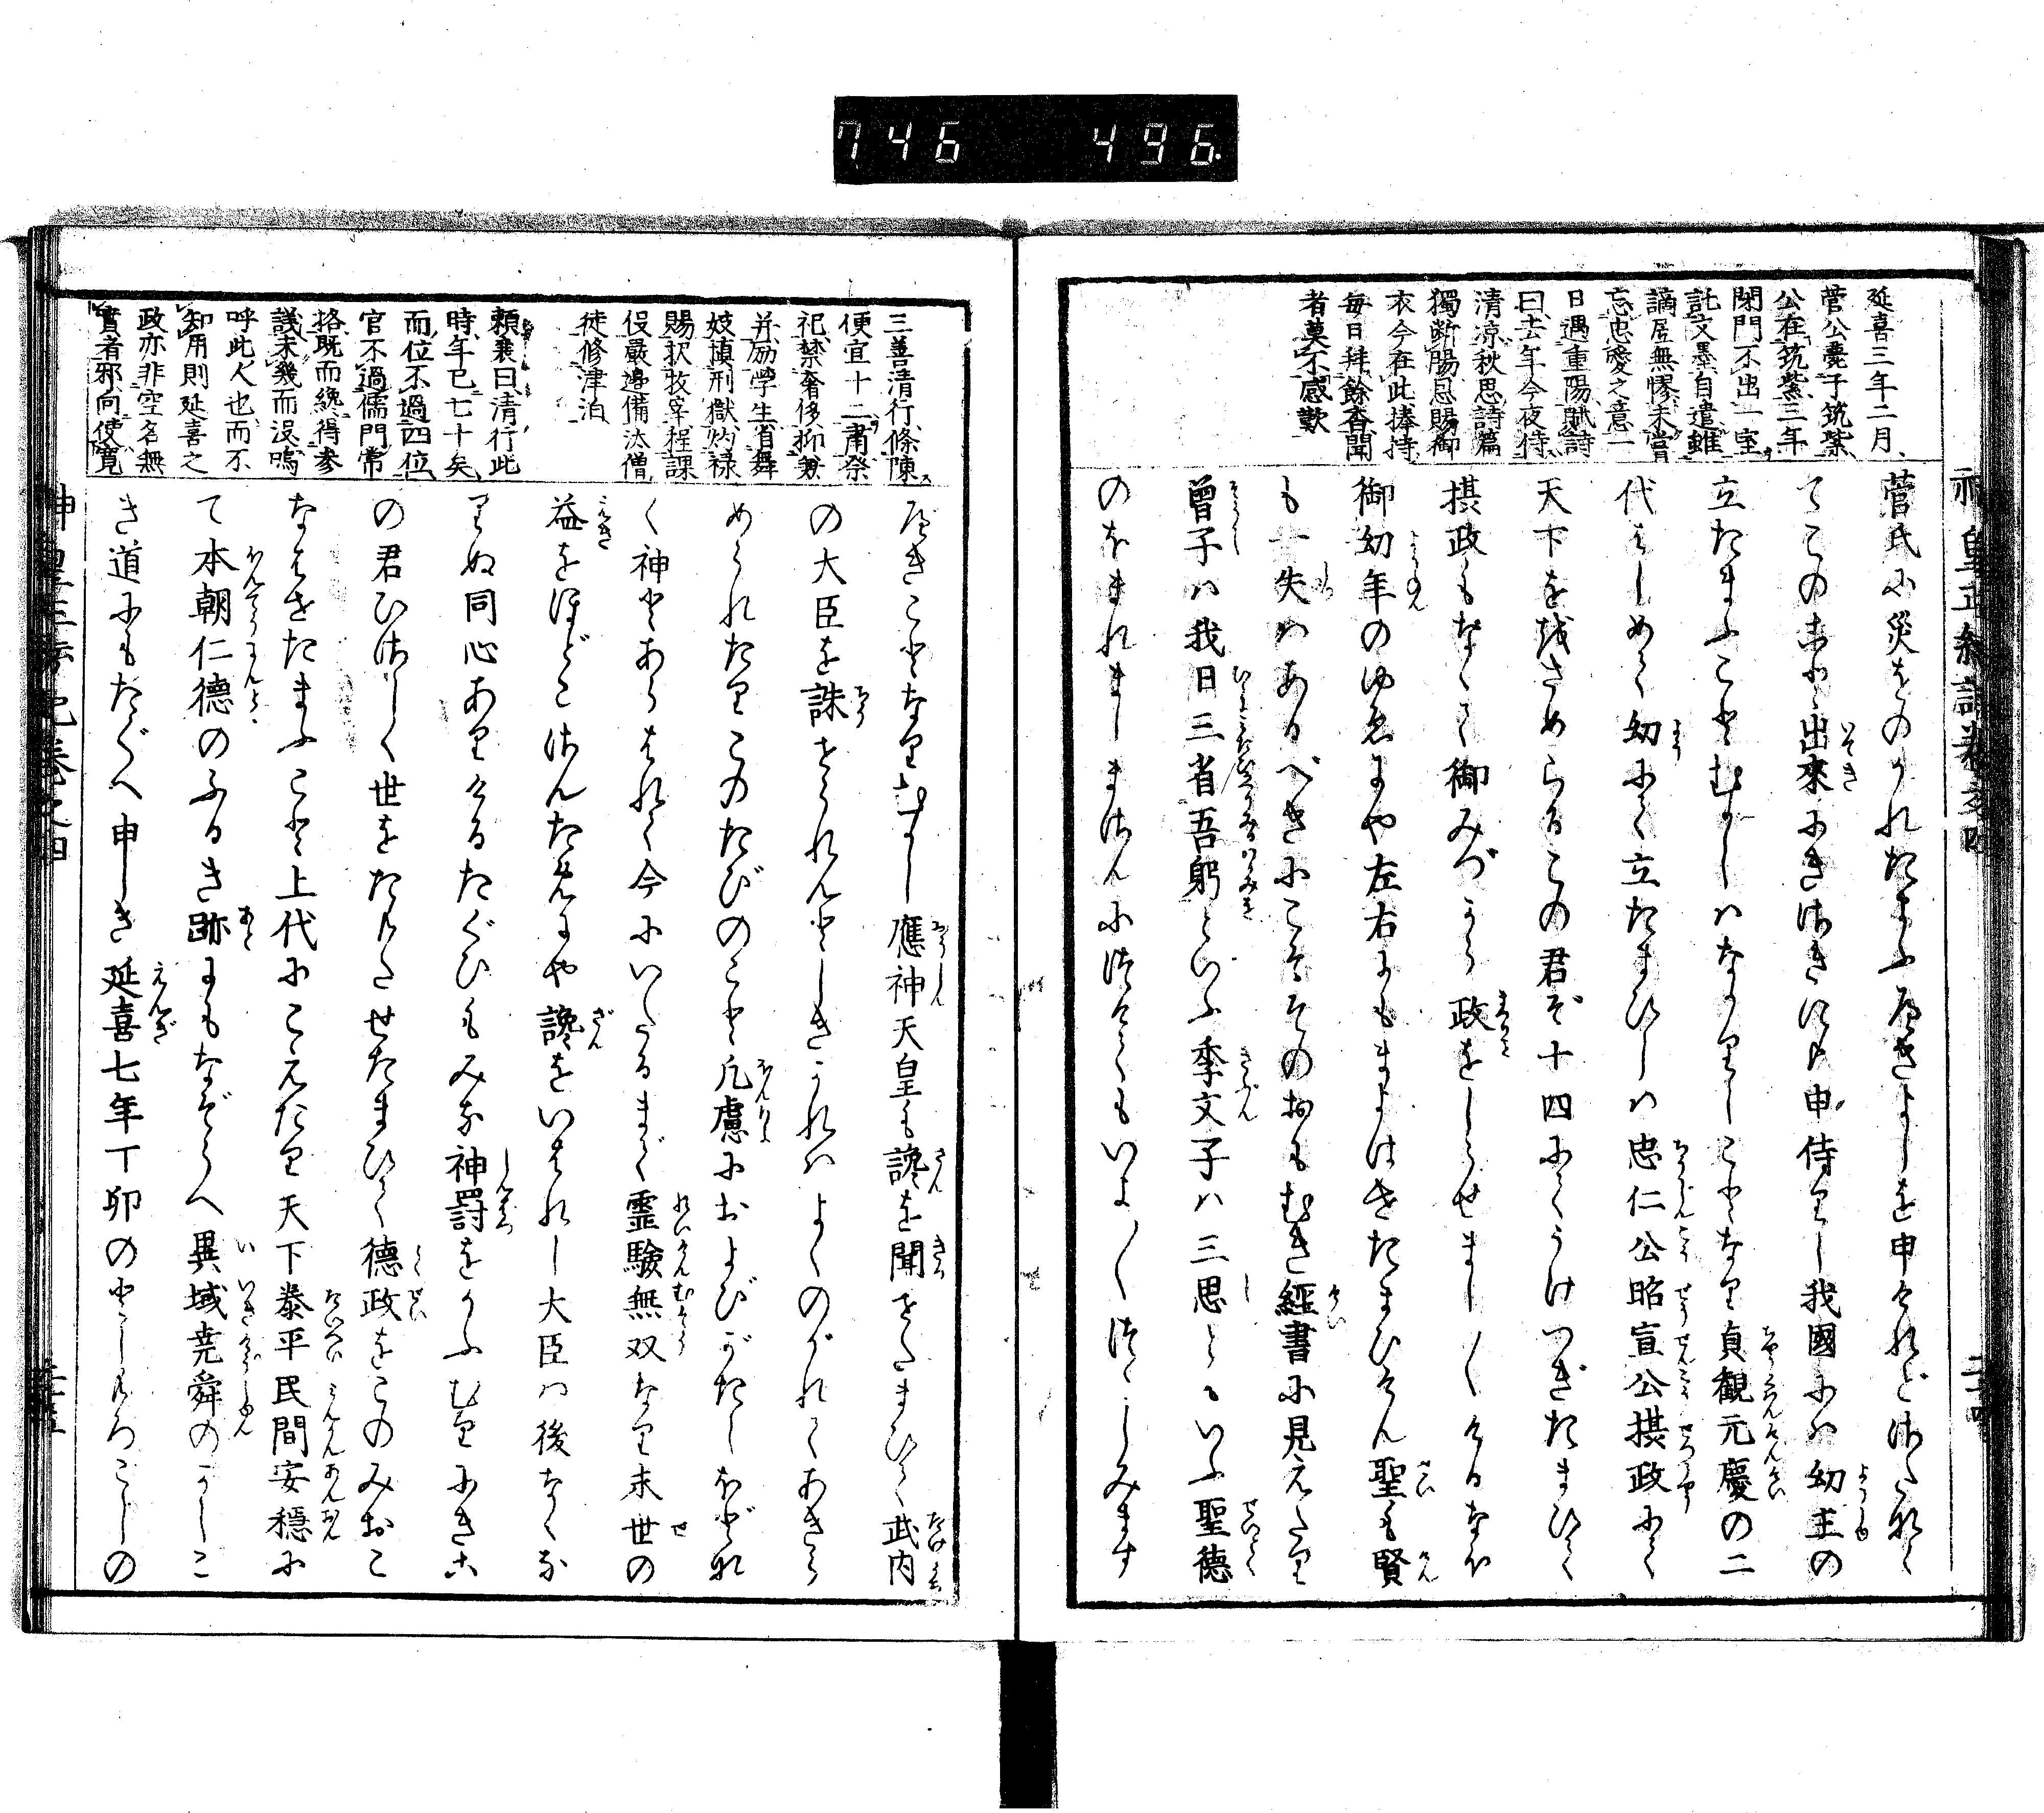 746 496
延喜三年二月
菅公薨于筑紫
公在筑紫三年
閉門不出一室
託文墨自遣雖
謫居無慘未嘗
忘忠愛之意一
日遇重陽賦詩
曰去年今夜侍
清凉秋思詩篇
獨斷腸恩賜御
衣今在此捧持
毎日拜餘香聞
者莫不感歎
菅氏に災をのがれたまふべきよしを申けれどさたなく
てこのこと出來にきさきにも申侍りし我國には幼主の
立たまふことむかしはなかりしことなり貞観元慶の二
代はじめて幼にて立たまひしは忠仁公昭宣公摂政にて
天下をおさめらるこの君ぞ十四にてうけつぎたまひて
摂政もなくて御みづから政をしらせまし〳〵けるなほ
御幼年のゆゑにや左右にもまよはせたまひけん聖も賢
も一失はあるべきにこそそのおもむき經書に見えたり
曾子は我日三省吾躬といふ季文子は三思とゝいふ聖德
のほまれましまさんにつけてもいよ〳〵つゝしみます
三善清行條陳
便宜十二肅祭
祀禁奢侈抑兼
并励学生省舞
妓慎刑獄灼禄
賜択牧宰程課
役嚴邊備汰僧
徒修津泊
頼襄曰清行此
時年已七十矣
而位不過四位
官不過儒門常
格既而纔得参
議未幾而没嗚
呼此人也而不
知用則延喜之
政亦非空名無
實者邪向使寛
べきことなりむかし應神天皇も讒を聞せたまひて武内
の大臣を誅せられんとしきかれはよくのがれてあきら
められたりこのたびのこと凡慮におよびがたしほどな
く神とあらはれて今にいたるまで霊験無双なり末世の
益をほどこさんためにや讒をいはれし大臣は後なくな
りぬ同心ありけるたぐひもみな神罰をかふむりにきこ
の君ひさしく世をたもたせたまひて德政をこのみおこ
なはせたまふこと上代にこえたり天下泰平民間安穏に
て本朝仁德のふるき跡にもなぞらへ異域尭舜のかしこ
き道にもたぐへ申しき延喜七年丁卯のとしもろこしの